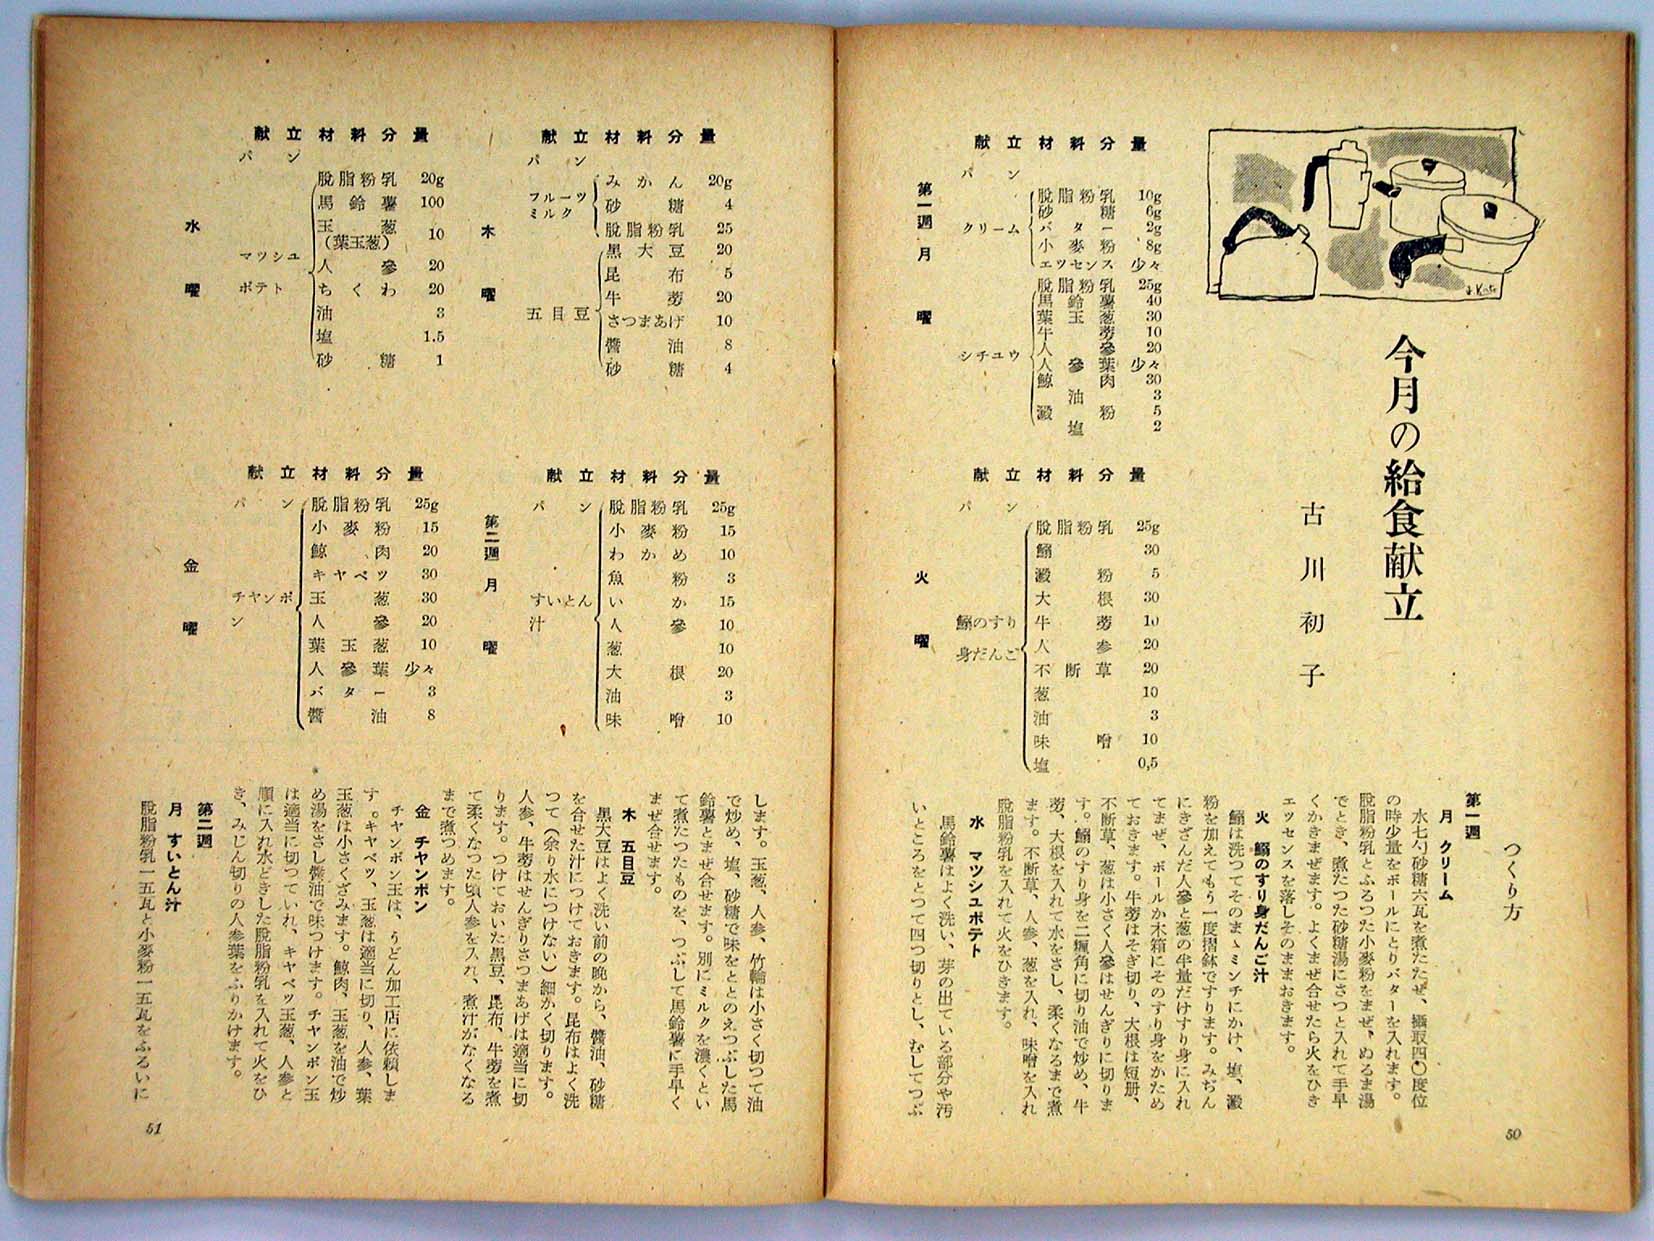 今月の給食献立
古川初子
献立材料分量
第一週月曜
パン
クリーム
脱脂粉乳 10g
砂糖 6g
バター 2g
小麥粉 8g
エツセンス 少々
シチユウ
脱脂粉乳 25g
馬鈴薯 40
葉玉葱 30
牛蒡 10
人參 20
人參葉 少々
鯨肉 30
油 3
澱粉 5
塩 2
献立材料分量
火曜
パン
鰯のすり身だんご
脱脂粉乳 25g
鰯 30
澱粉 5
大根 30
牛蒡 10
人参 20
不断草 20
葱 10
油 3
味噌 10
塩 0,5
つくり方
第一週
月 クリーム
水七勺砂糖六瓦を煮たたぜ、攝取四〇度位
の時少量をボールにとりバターを入れます。
脱脂粉乳とふるつた小麥粉をまぜ、ぬるま湯
でとき、煮たつた砂糖湯にさつと入れて手早
くかきまぜます。よくまぜ合せたら火をひき
エッセンスを落しそのままおきます。
火 鰯のすり身だんご汁
鰯は洗つてそのまゝミンチにかけ、塩、澱
粉を加えてもう一度摺鉢ですります。みぢん
にきざんだ人參と葱の半量だけすり身に入れ
てまぜ、ボールか木箱にそのすり身をかため
ておきます。牛蒡はそぎ切り、大根は短册、
不断草、葱は小さく人參はせんぎりに切りま
す。鰯のすり身を二糎角に切り油で炒め、牛
蒡、大根を入れて水をさし、柔くなるまで煮
ます。不断草、人参、葱を入れ、味噌を入れ
脱脂粉乳を入れて火をひきます。
水 マツシユポテト
馬鈴薯はよく洗い、芽の出ている部分や汚
いところをとつて四つ切りとし、むしてつぶ
50
献立材料分量
木曜
パン
フルーツミルク
みかん 20g
砂糖 4
脱脂粉乳 25
五目豆
黒大豆 20
昆布 5
牛蒡 20
さつまあげ 10
醬油 8
砂糖 4
献立材料分量
水曜
パン
マツシユポテト
脱脂粉乳 20g
馬鈴薯 100
玉葱(葉玉葱) 10
人參 20
ちくわ 20
油 3
塩 1.5
砂糖 1
献立材料分量
第二週月曜
パン
すいとん汁
脱脂粉乳 25g
小麥粉 15
わかめ 10
魚粉 3
いか 15
人參 10
葱 10
大根 20
油 3
味噌 10
献立材料分量
金曜
パン
チヤンポン
脱脂粉乳 25g
小麥粉 15
鯨肉 20
キヤベツ 30
玉葱 30
人參 20
葉玉葱 10
人參葉 少々
バター 3
醬油 8
します。玉葱、人参、竹輪は小さく切つて油
で炒め、塩、砂糖で味をととのえつぶした馬
鈴薯とまぜ合せます。別にミルクを濃くとい
て煮たつたものを、つぶして馬鈴薯に手早く
まぜ合せます。
木 五目豆
黒大豆はよく洗い前の晩から、醬油、砂糖
を合せた汁につけておきます。昆布はよく洗
つて(余り水につけない)細かく切ります。
人参、牛蒡はせんぎりさつまあげは適当に切
ります。つけておいた黒豆、昆布、牛蒡を煮
て柔くなつた頃人参を入れ、煮汁がなくなる
まで煮つめます。
金 チヤンポン
チヤンポン玉は、うどん加工店に依頼しま
す。キヤベツ、玉葱は適当に切り、人参、葉
玉葱は小さくざみます。鯨肉、玉葱を油で炒
め湯をさし醬油で味つけます。チヤンポン玉
は適当に切つていれ、キヤベツ玉葱、人參と
順に入れ水どきした脱脂粉乳を入れて火をひ
き、みじん切りの人参葉をふりかけます。
第二週
月 すいとん汁
脱脂粉乳一五瓦と小麥粉一五瓦をふるいに
51